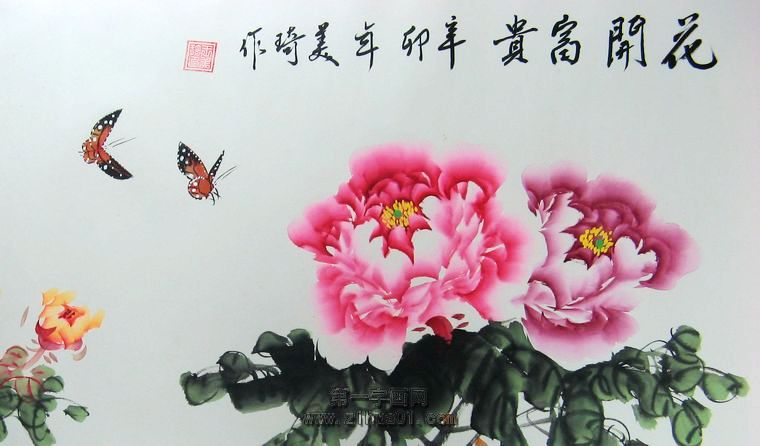 花開富貴 辛卯年美琦作
第一字画网
www.zihua01.com